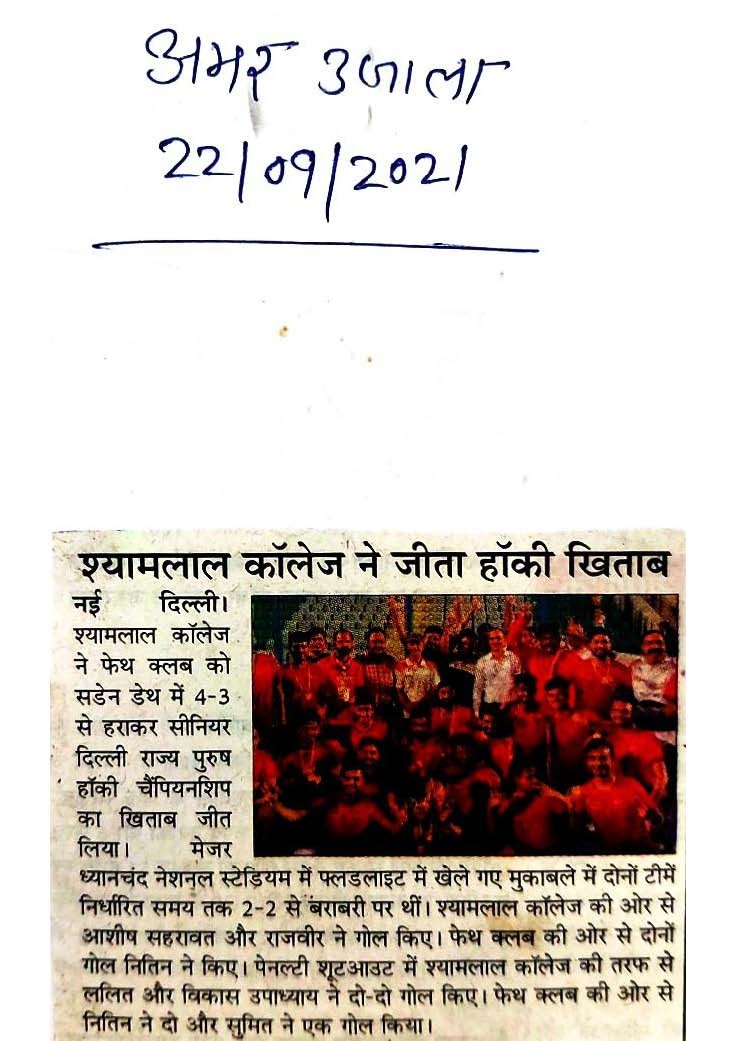 अमर उजाला
22/09/2021
श्यामलाल कॉलेज ने जीता हॉकी खिताब
नई दिल्ली।
श्यामलाल कॉलेज
ने फेथ क्लब को
सडेन डेथ में 4-3
से हराकर सीनियर
दिल्ली राज्य पुरुष
हॉकी चैंपियनशिप
का खिताब जीत
लिया। मेजर
ध्यानचंद नेशनल स्टेडियम में फ्लडलाइट में खेले गए मुकाबले में दोनों टीमें
निर्धारित समय तक 2-2 से बराबरी पर थीं। श्यामलाल कॉलेज की ओर से
आशीष सहरावत और राजवीर ने गोल किए। फेथ क्लब की ओर से दोनों
गोल नितिन ने किए। पेनल्टी शूटआउट में श्यामलाल कॉलेज की तरफ से
ललित और विकास उपाध्याय ने दो-दो गोल किए। फेथ क्लब की ओर से
नितिन ने दो और सुमित ने एक गोल किया।